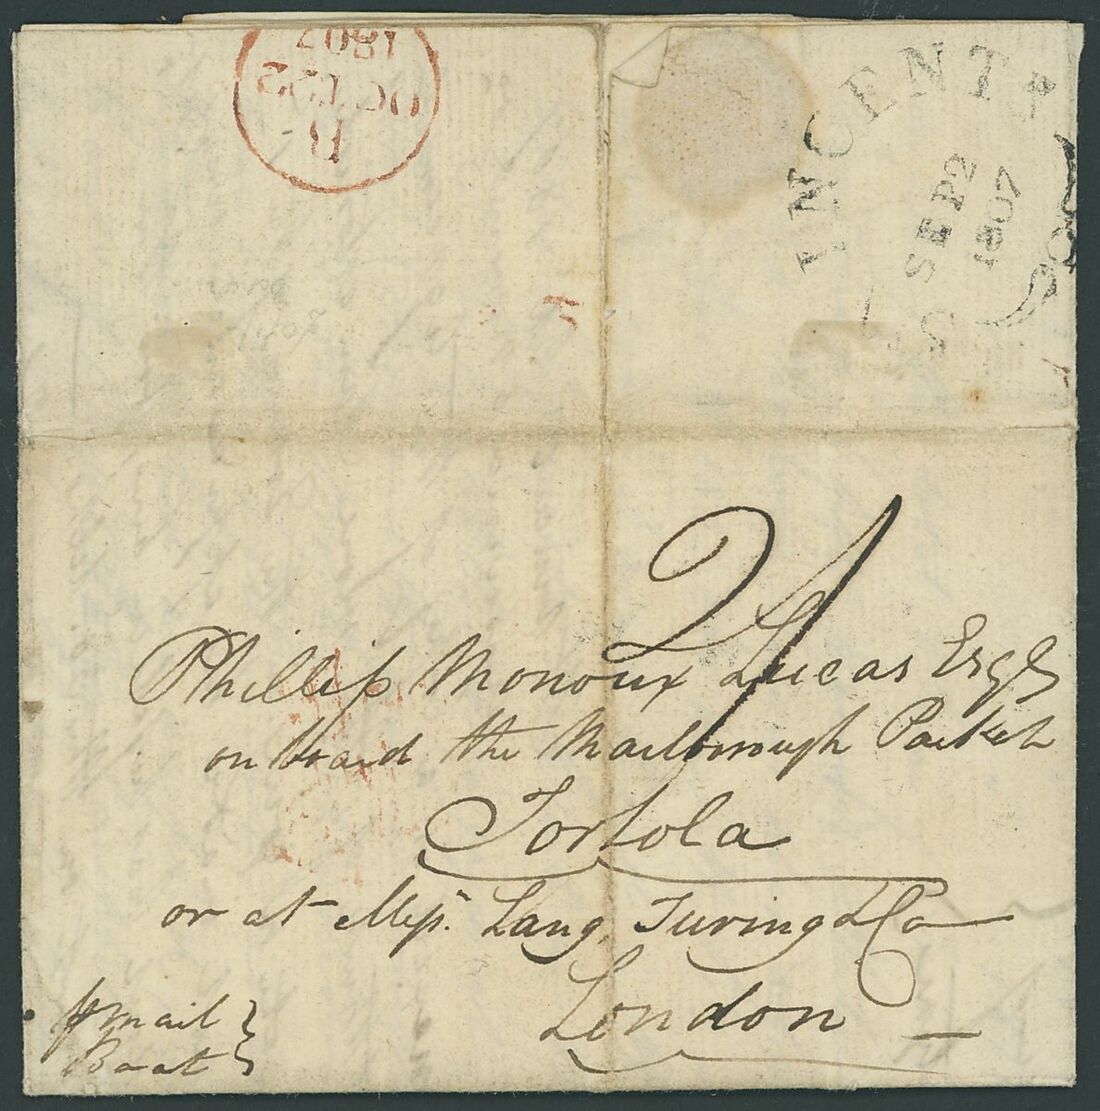 1807
OCT 22
11
ST VINCENTS
SEP 2
1807
2/
Phillip Monoux Lucas Esqr
on board the Marlborough Packet
Tortola
or at Messrs. Lang, Turing & Co
London
pr Mail
Boat